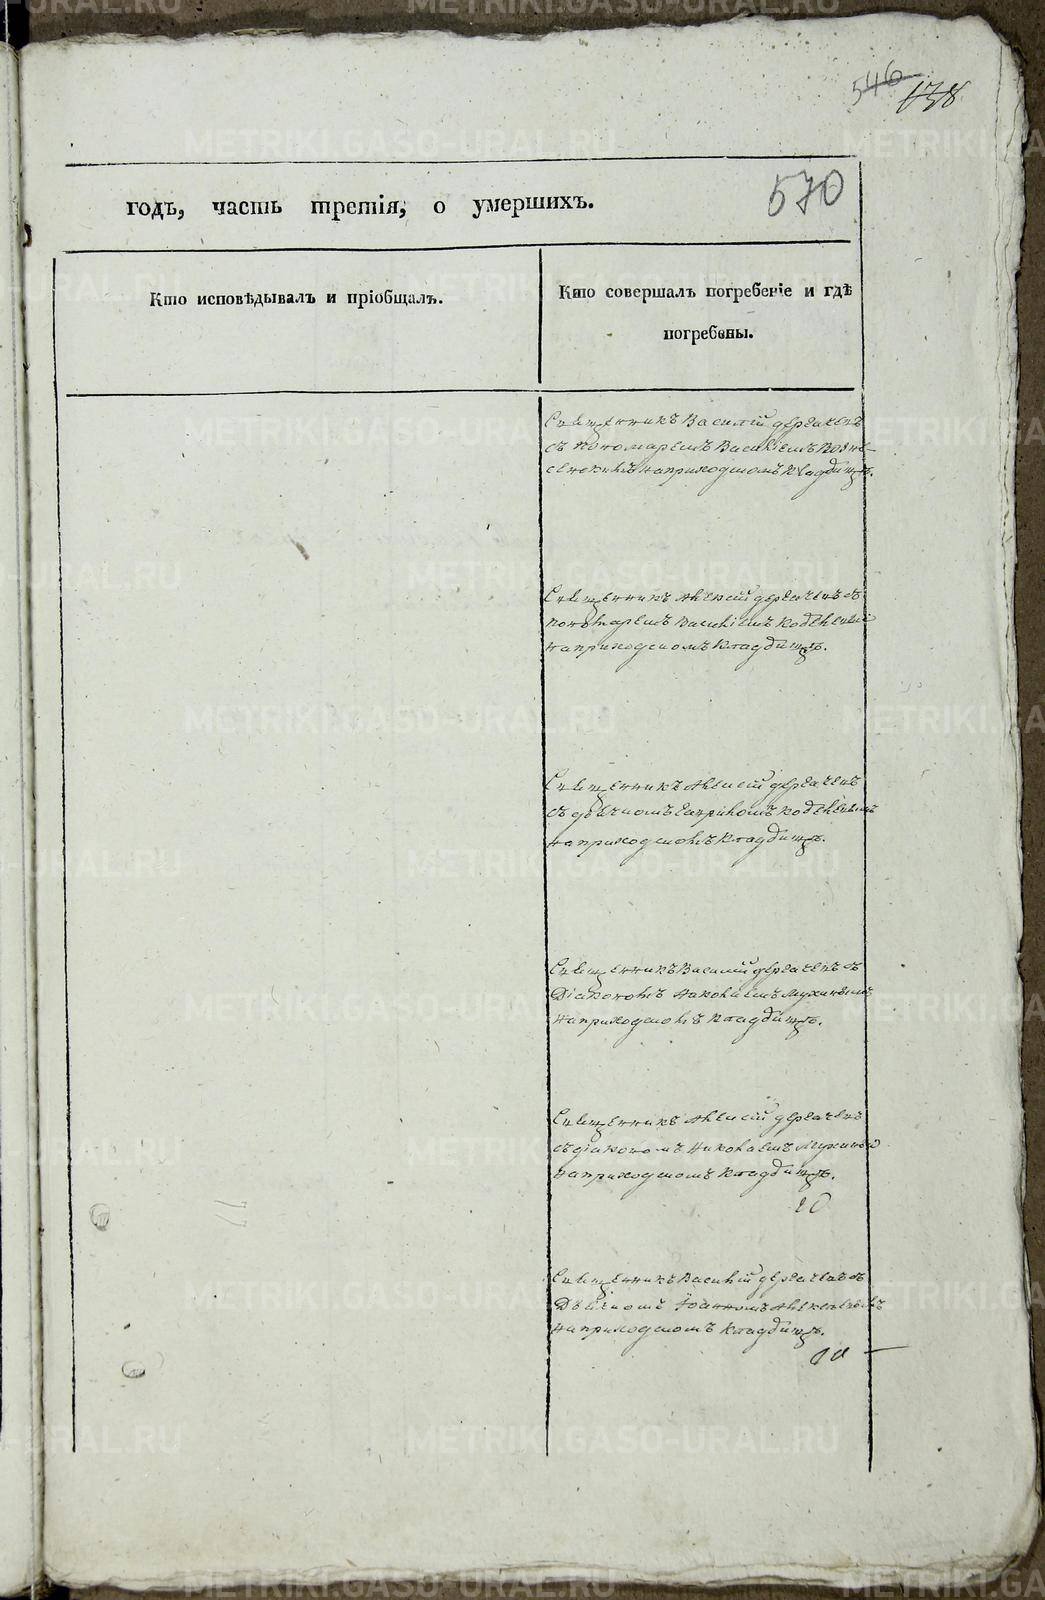 546
138
570
годъ, часть третія, о умершихъ.
Кто исповѣдывалъ и пріобщалъ.
Кто совершалъ погребеніе и гдѣ
погребены.
Священникъ Василій Дерсачевъ
съ пономаремъ Василіемъ Возне-
сенскимъ на приходскомъ Кладбищѣ.
Священникъ Алексій Дерсачевъ съ
пономаремъ Василіемъ
на приходскомъ Кладбищѣ.
Священникъ Алексій Дерсачевъ
съ дьячкомъ
на приходскомъ Кладбищѣ.
Священникъ Василій Дерсачевъ съ
Діакономъ Николаемъ Мухинымъ
на приходскомъ Кладбищѣ.
Священникъ Алексій Дерсачевъ
съ діакономъ Николаемъ
на приходскомъ Кладбищѣ.
Священникъ Василій Дерсачевъ съ
Дьячкомъ Іоанномъ
на приходскомъ Кладбищѣ.
METRIKI.GASO-URAL.RU